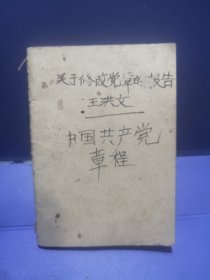 关于修改党章的报告
王洪文
中国共产党
章程